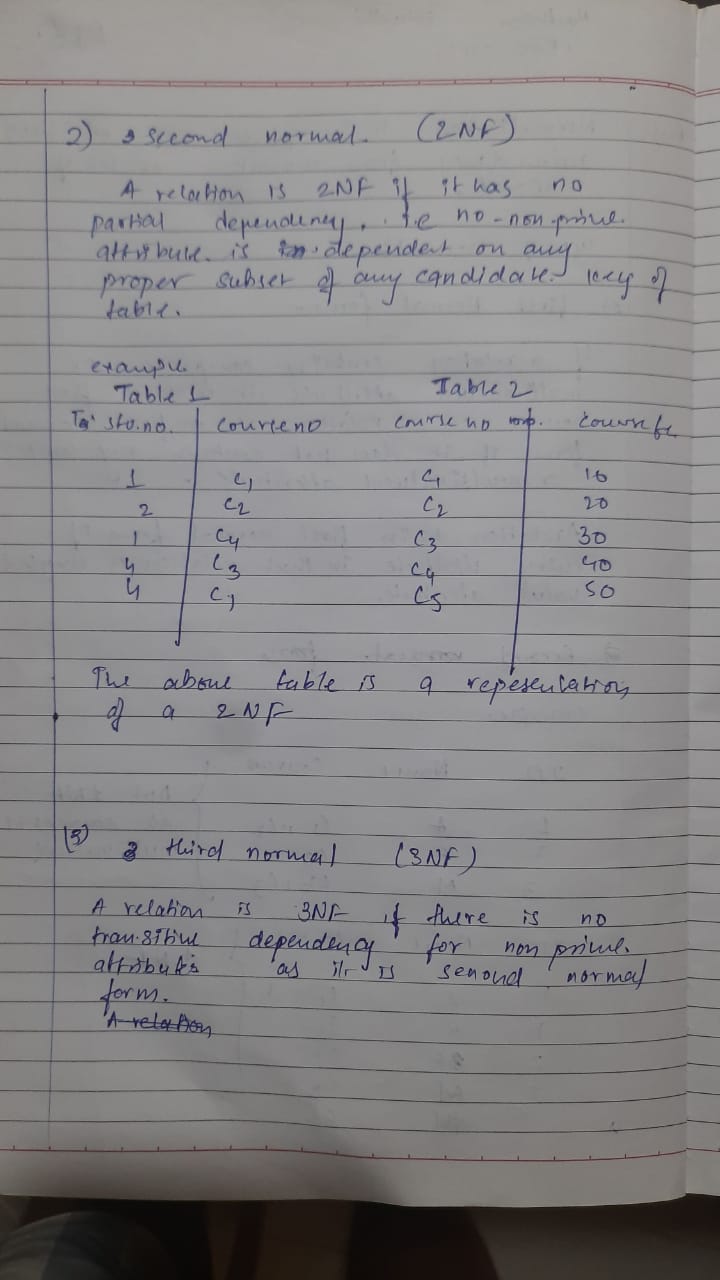 2) second normal. (2NF)
A relation is 2NF if it has no
partial dependency. i.e no-non prime
attribute. is dependent on any
proper subset of any candidate. key of
table.
example
Table 1 Table 2
stu.no. course no course no course fe
1 C1 C1 10
2 C2 C2 20
1 C4 C3 30
4 C3 C4 40
4 C1 C5 50
The above table is a repesentation
of a 2NF
(3) third normal (3NF)
A relation is 3NF if there is no
transitive dependency for non prime.
attributes as it is senond normal
form.
A relation